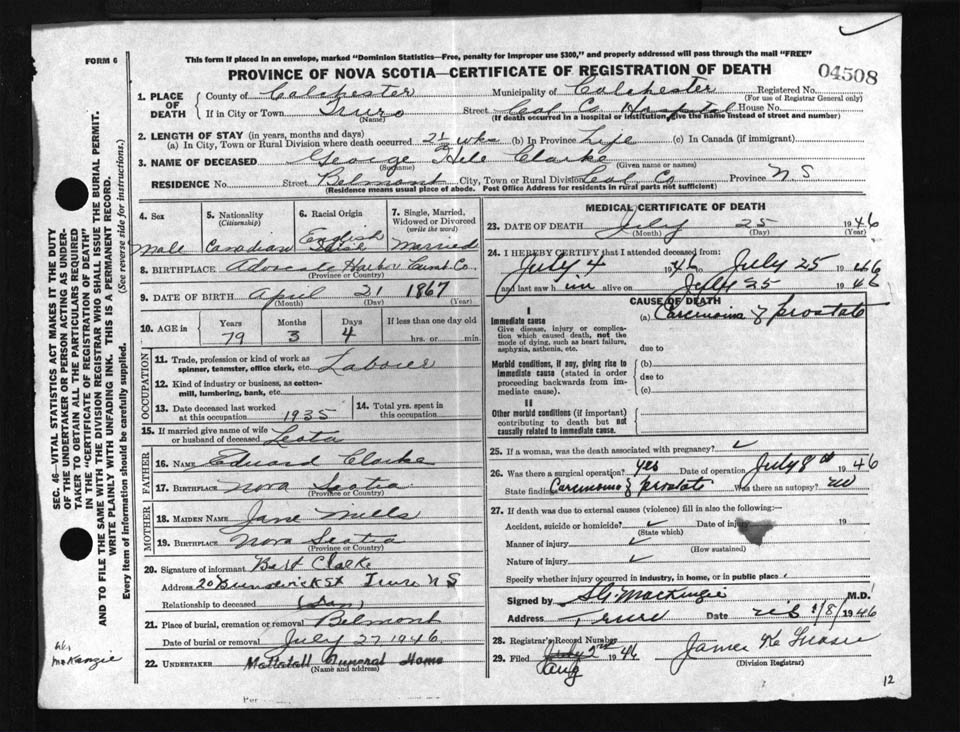 FORM 6
This form if placed in an envelope, marked "Dominion Statistics—Free, penalty for improper use $300," and properly addressed will pass through the mail "FREE"
PROVINCE OF NOVA SCOTIA—CERTIFICATE OF REGISTRATION OF DEATH
04508
1. PLACE OF DEATH County of Colchester Municipality of Colchester Registered No.
(For use of Registrar General only)
If in City or Town Truro Street Col. Co. Hospital House No.
(Name) (If death occurred in a hospital or institution, give the name instead of street and number)
2. LENGTH OF STAY (in years, months and days)
(a) In City, Town or Rural Division where death occurred 2½ wks (b) In Province Life (c) In Canada (if immigrant)
3. NAME OF DECEASED George Clarke
(Surname) (Given name or names)
RESIDENCE No. Street Belmont City, Town or Rural Division Col Co Province N.S
(Residence means usual place of abode. Post Office Address for residents in rural parts not sufficient)
4. Sex 5. Nationality (Citizenship) 6. Racial Origin 7. Single, Married, Widowed or Divorced (write the word)
Male Canadian English Married
8. BIRTHPLACE Advocate Harbor Cumb. Co.
(Province or Country)
9. DATE OF BIRTH April 21 1867
(Month) (Day) (Year)
10. AGE in Years Months Days If less than one day old
79 3 4 hrs. or min.
OCCUPATION
11. Trade, profession or kind of work as spinner, teamster, office clerk, etc. Laborer
12. Kind of industry or business, as cotton-mill, lumbering, bank, etc.
13. Date deceased last worked at this occupation 1935 14. Total yrs. spent in this occupation
15. If married give name of wife or husband of deceased Leota
FATHER
16. NAME Edward Clarke
17. BIRTHPLACE Nova Scotia
(Province or Country)
MOTHER
18. MAIDEN NAME Jane Mills
19. BIRTHPLACE Nova Scotia
(Province or Country)
20. Signature of informant Burt Clarke
Address 20 St Truro N S
Relationship to deceased (Son)
21. Place of burial, cremation or removal Belmont
Date of burial or removal July 27 1946
22. UNDERTAKER Mattatall Funeral Home
(Name and address)
MEDICAL CERTIFICATE OF DEATH
23. DATE OF DEATH July 25 1946
(Month) (Day) (Year)
24. I HEREBY CERTIFY that I attended deceased from:
July 4 1946 to July 25 1946
and last saw him alive on July 25 1946
CAUSE OF DEATH
I
Immediate cause (a) Carcinoma of prostate
Give disease, injury or complication which caused death, not the mode of dying, such as heart failure, asphyxia, asthenia, etc. due to
Morbid conditions, if any, giving rise to immediate cause (stated in order proceeding backwards from immediate cause). (b)
due to
(c)
II
Other morbid conditions (if important) contributing to death but not causally related to immediate cause.
25. If a woman, was the death associated with pregnancy? ✓
26. Was there a surgical operation? yes Date of operation July 8th 1946
State findings Carcinoma of prostate Was there an autopsy? no
27. If death was due to external causes (violence) fill in also the following:—
Accident, suicide or homicide? ✓ Date of injury 19
(State which)
Manner of injury ✓
(How sustained)
Nature of injury ✓
Specify whether injury occurred in industry, in home, or in public place
Signed by S.G. MacKenzie M.D.
Address Truro 1946
28. Registrar's Record Number
29. Filed Aug 2nd 1946
(Division Registrar)
SEC. 46—VITAL STATISTICS ACT MAKES IT THE DUTY
OF THE UNDERTAKER OR PERSON ACTING AS UNDER-
TAKER TO OBTAIN ALL THE PARTICULARS REQUIRED
IN THE "CERTIFICATE OF REGISTRATION OF DEATH"
AND TO FILE THE SAME WITH THE DIVISION REGISTRAR WHO SHALL ISSUE THE BURIAL PERMIT.
WRITE PLAINLY WITH UNFADING INK. THIS IS A PERMANENT RECORD.
Every item of information should be carefully supplied. (See reverse side for instructions.)
McKenzie
Per
12